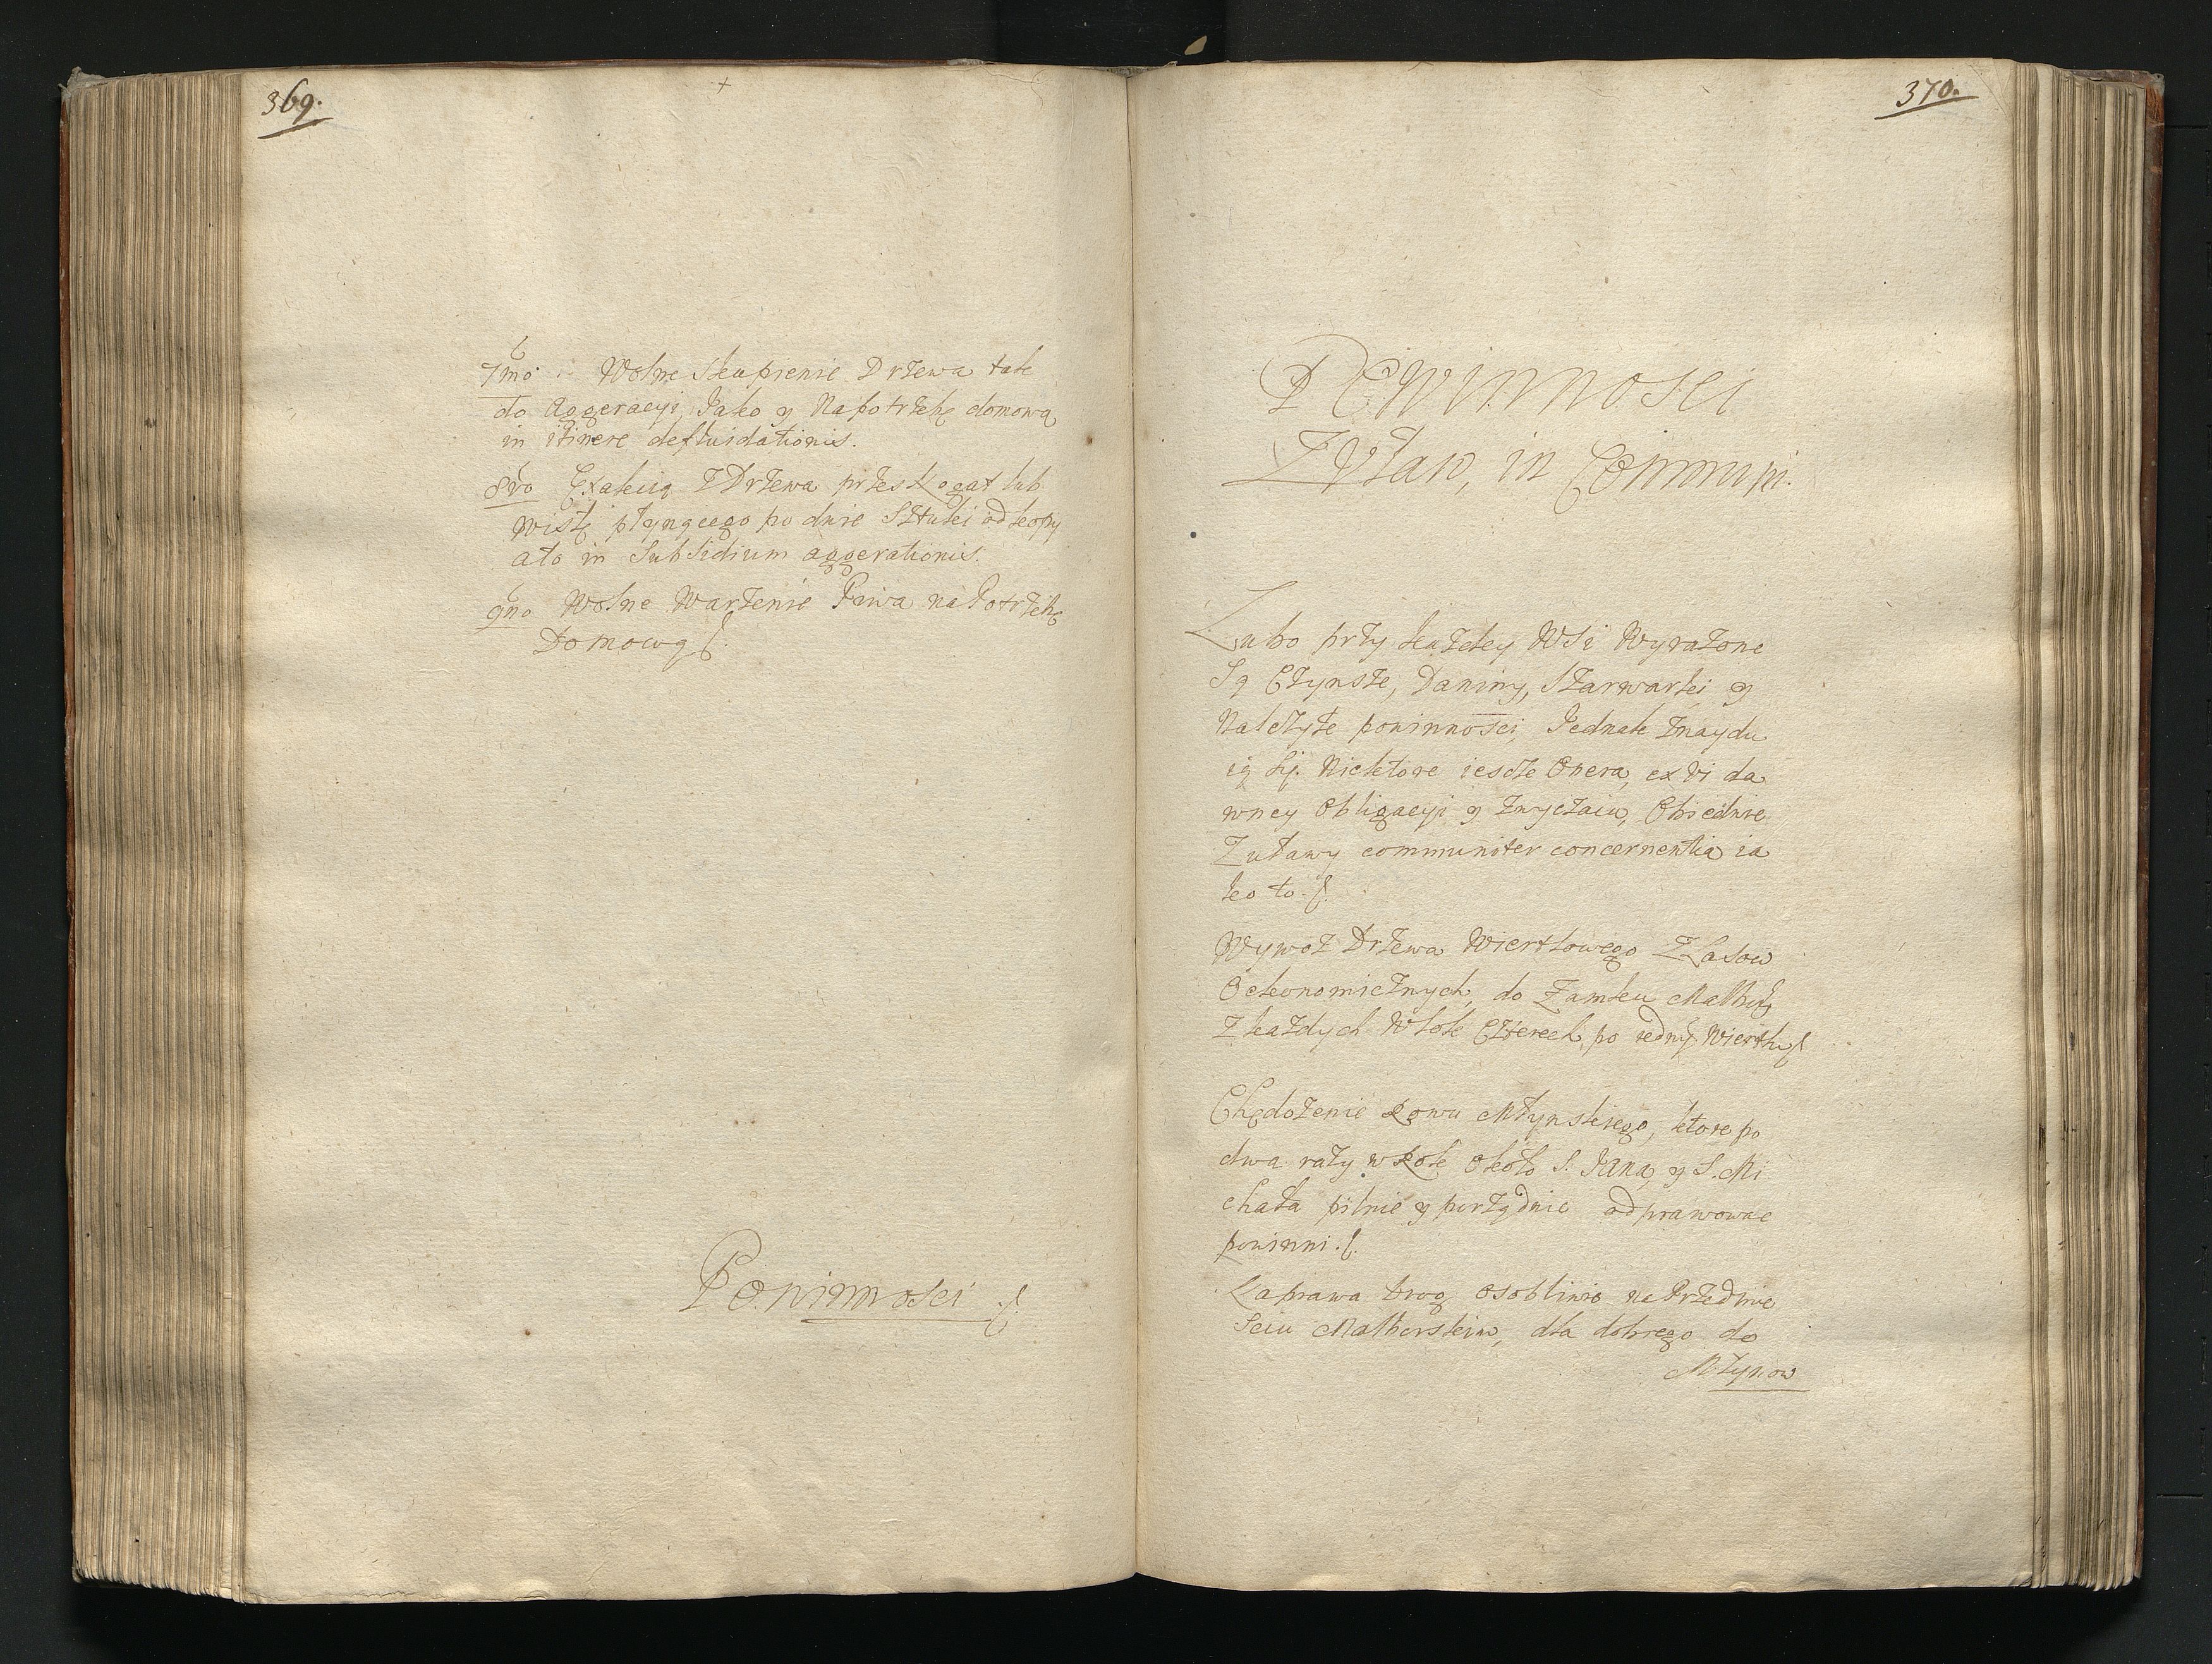 369.
7mo Wolne Skupienie Drzewa tak
do Aggeracyi, Jako y Na potrzebę domową
in itinere defluidationis.
8vo Exakcia z Drzewa przes Nogat lub
Wisłę płynącego po dwie Sztuki od kopy
ato in Subsidium aggerationis.
9no Wolne Warzenie Piwa na Potrzebę
Domową
Powinnosci
370.
Powinnosci
Zuław, in Communi.
Lubo przy każdey Wsi Wyrażone
Są Czynsze, Daniny, Szarwarki y
Należyte powinnosci, Jednak znaydu
ią się Niektore iescze Onera, ex vi da
wney Obligacyi y zwyczaiu, Obiedwie
Zuławy communiter concernentia ia
ko to
Wywoz Drzewa Wiertlowego z Lasow
Oekonomicznych, do Zamku Malbor:
z każdych Włok Czterech, po iedny Wiertlu
Chędożenie Rowu Młynskiego, ktore po
dwa razy w Rok około S. Jana, y S. Mi
chała pilnie y porządnie odprawowac
powinni.
Naprawa drog osobliwie na Przedmie
sciu Malborskim, dla dobrego do
Młynow